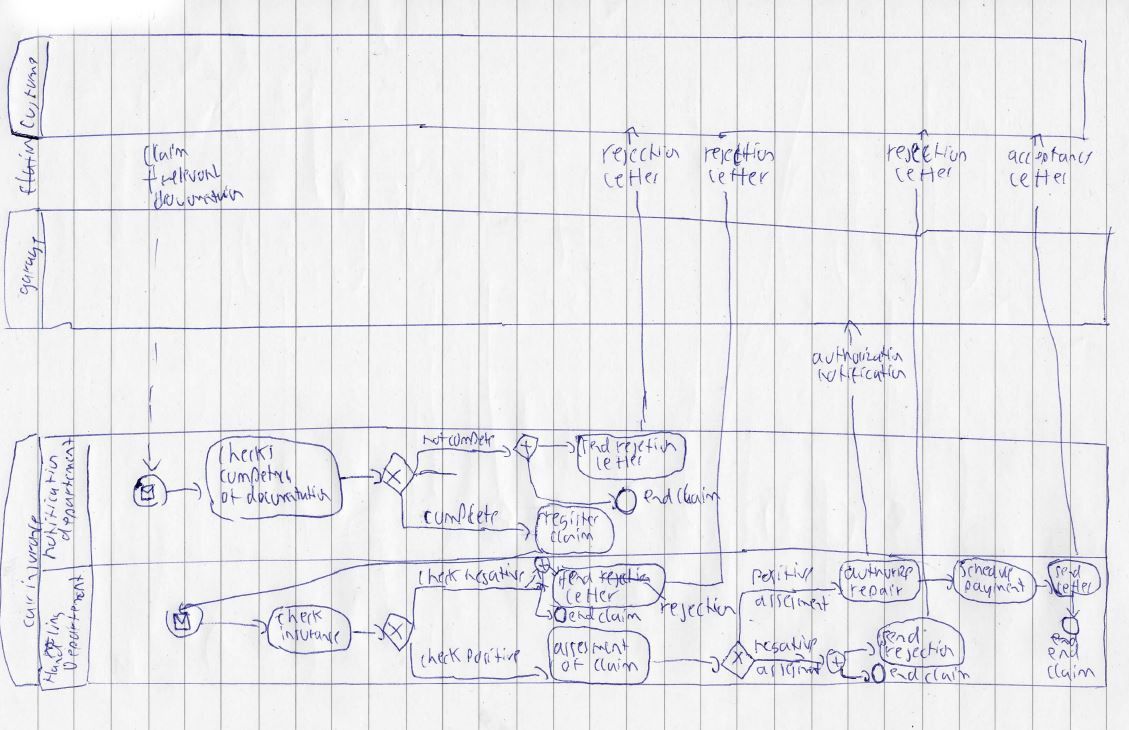 Claim
+ relevant
documentation
rejection
letter
rejection
letter
rejection
letter
acceptance
letter
garage
authorization
notification
car insurance
notification
departement
checks
of documentation
not complete
send rejection
letter
end claim
complete
register
claim
Handling
Departement
check
insurance
check negative
send rejection
letter
end claim
rejection
check positive
assesment
of claim
positive
assesment
authorize
repair
schedule
payment
send
letter
end
claim
negative
send
rejection
end claim